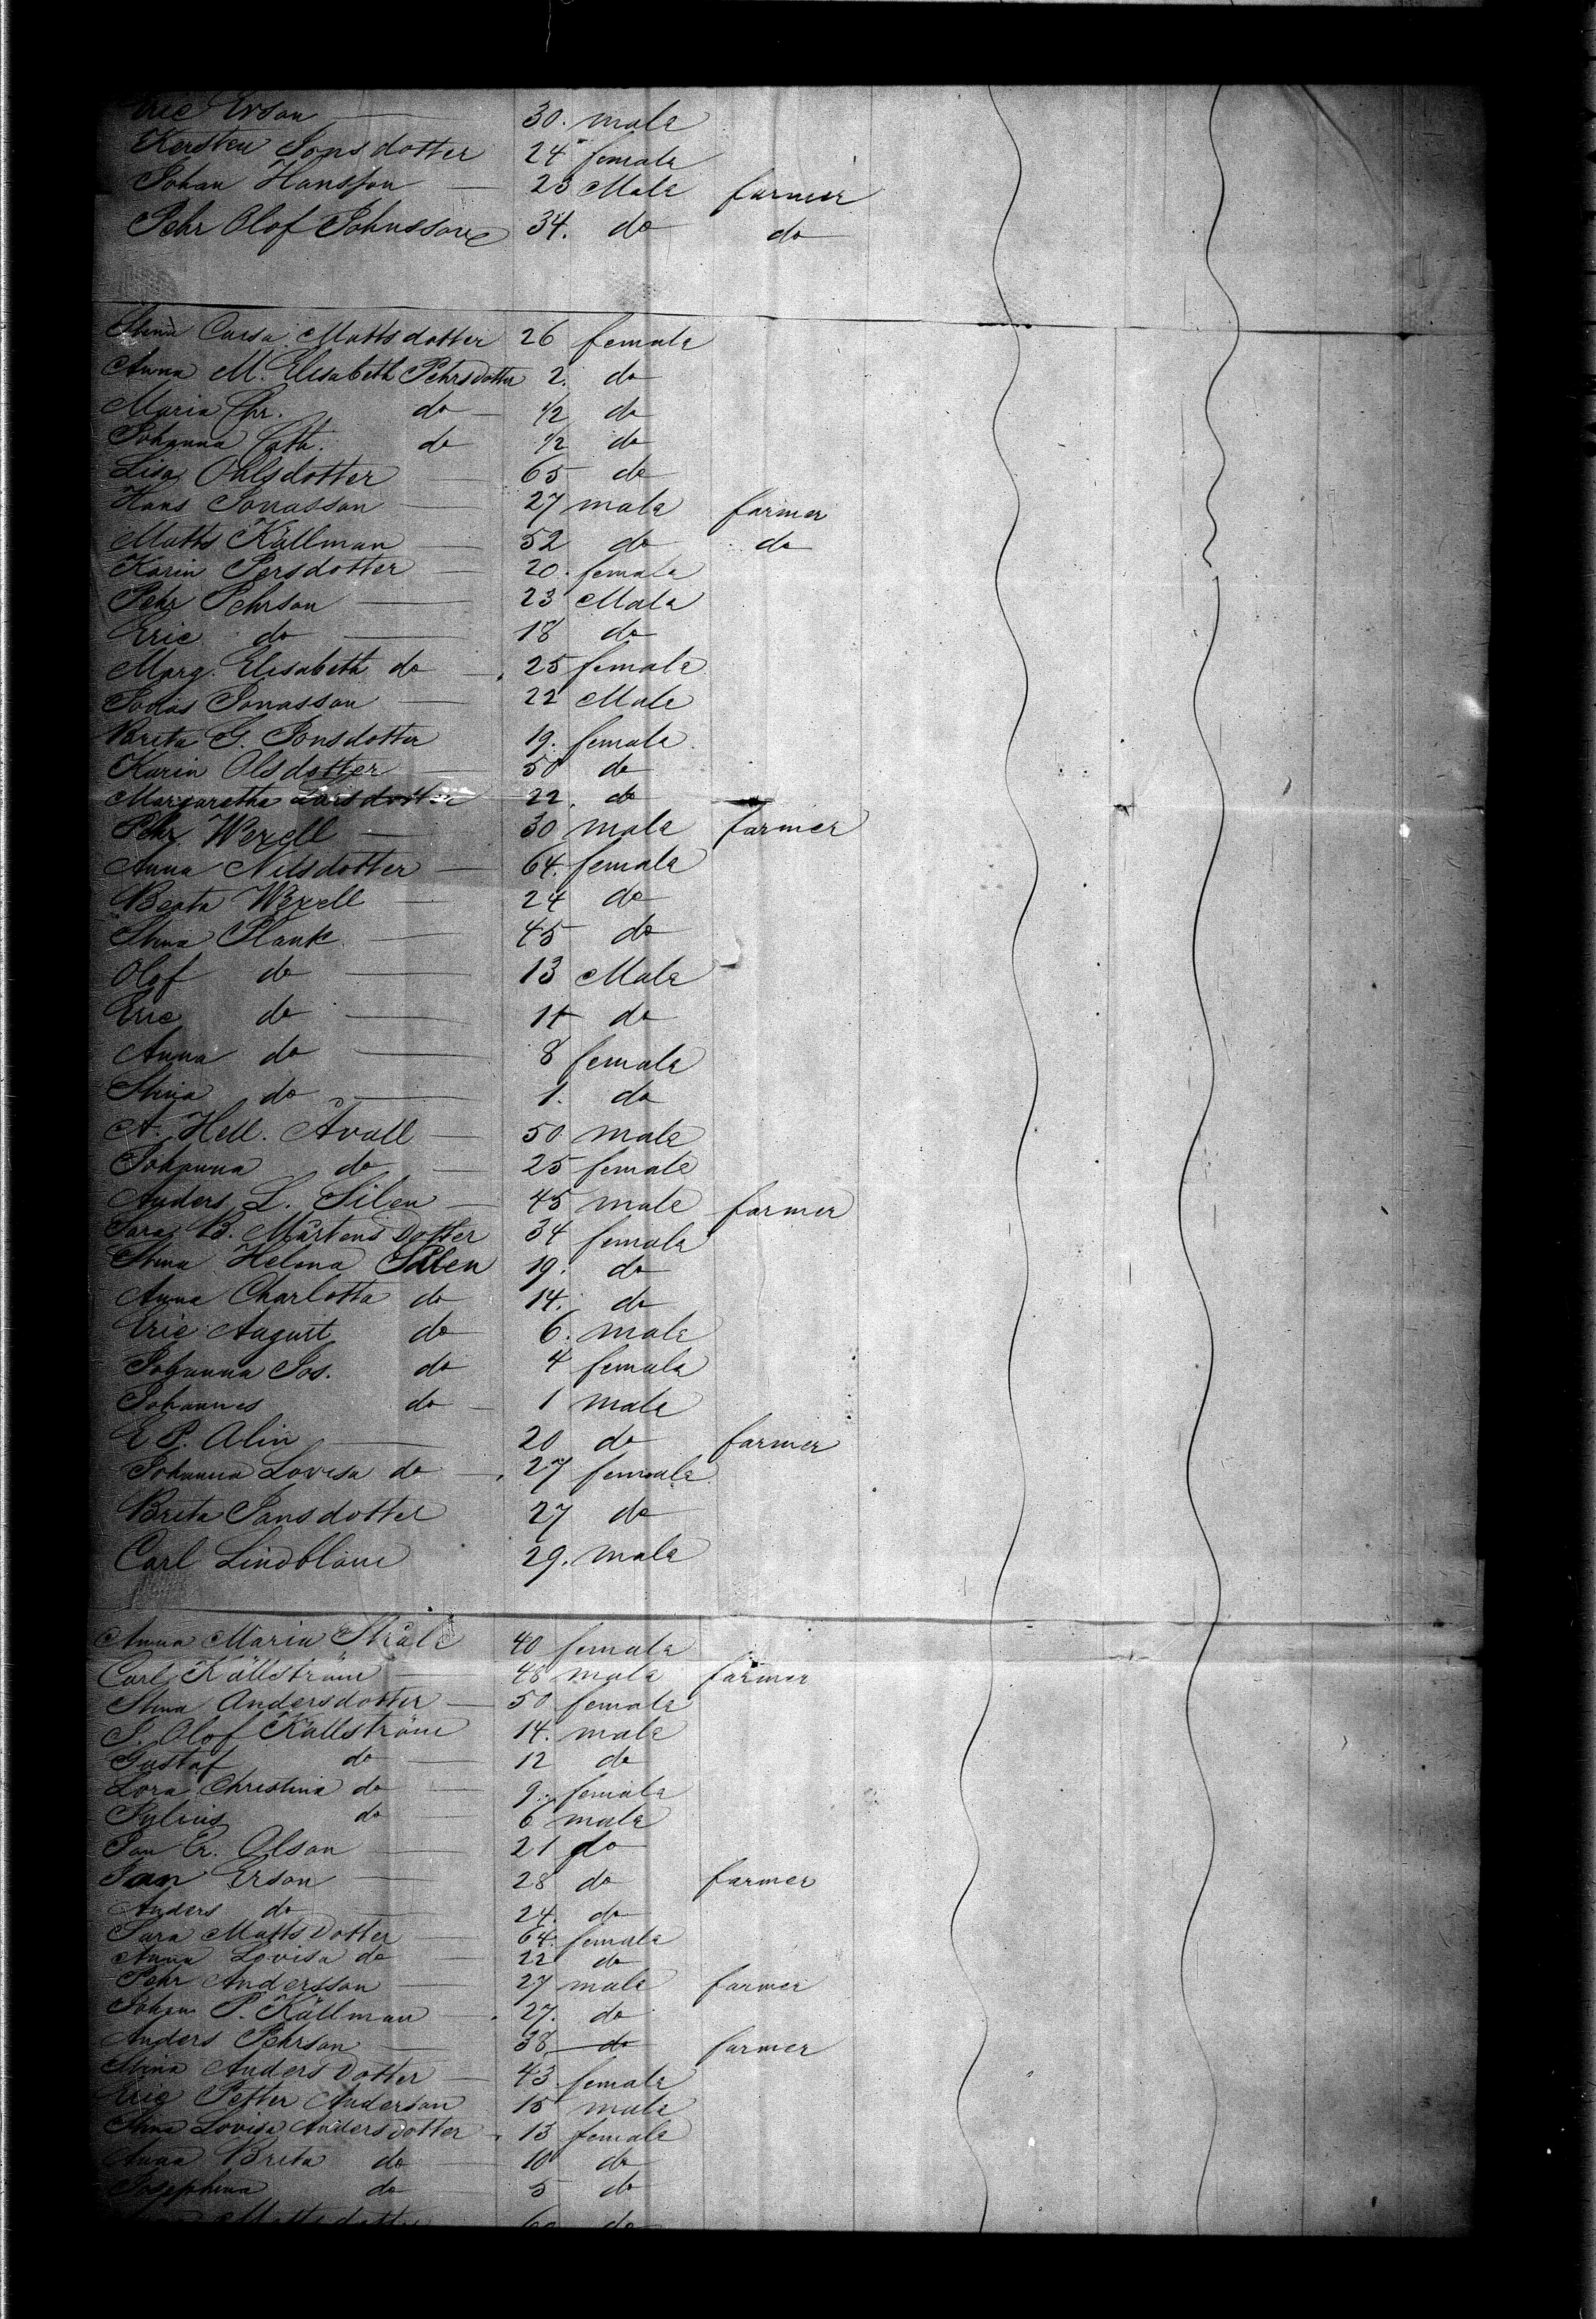 Eric Erson 30. male
Kersten Jonsdotter 24 female
Johan Hansson 23 Male farmer
Pehr Olof Johnsson 34. do do
Stina Carsa Mattsdotter 26 female
Anna M. Elisabeth Pehrsdotter 2. do
Maria Chr. do 1/2 do
Johanna Cath. do 1/2 do
Lisa Ohlsdotter 65 do
Hans Jonasson 27 male farmer
Matts Källman 52 do do
Karin Persdotter 20. female
Pehr Pehrson 23 Male
Eric do 18 do
Marg. Elisabeth do 25 female
Jonas Jonasson 22 Male
Brita G. Jonsdotter 19. female
Karin Olsdotter 50 do
Margaretha Larsdotter 22. do
Pehr Wexell 30 male farmer
Anna Nilsdotter 64. female
Beata Wexell 24 do
Stina Plank 45 do
Olof do 13 Male
Eric do 11 do
Anna do 8 female
Stina do 1. do
A. Hell. Åvall 50 male
Johanna do 25 female
Anders L. Silen 45 male farmer
Sara B. Mårtens Dotter 34 female
Stina Helena Silen 19. do
Anna Charlotta do 14. do
Eric August do 6. male
Johanna Jos. do 4 female
Johannes do 1 male
E P. Alin 20 do farmer
Johanna Lovisa do 27 female
Brita Jansdotter 27 do
Carl Lindblom 29. male
Anna Maria Stråle 40 female
Carl Källström 48 male farmer
Stina Andersdotter 50 female
J. Olof Källström 14. male
Gustaf do 12 do
Lora Christina do 9. female
Julius do 6 male
Jan Er. Olson 21 do
Jan Erson 28 do farmer
Anders do 24. do
Sara Matts Dotter 64. female
Anna Lovisa do 22 do
Pehr Andersson 27 male farmer
Johan P. Källman 27. do
Anders Pehrson 38. do farmer
Stina Anders Dotter 43 female
Eric Petter Anderson 15 male
Stina Lovisa Anders dotter 13 female
Anna Brita do 10 do
Josephina do 5 do
Mattsdotter 60 do